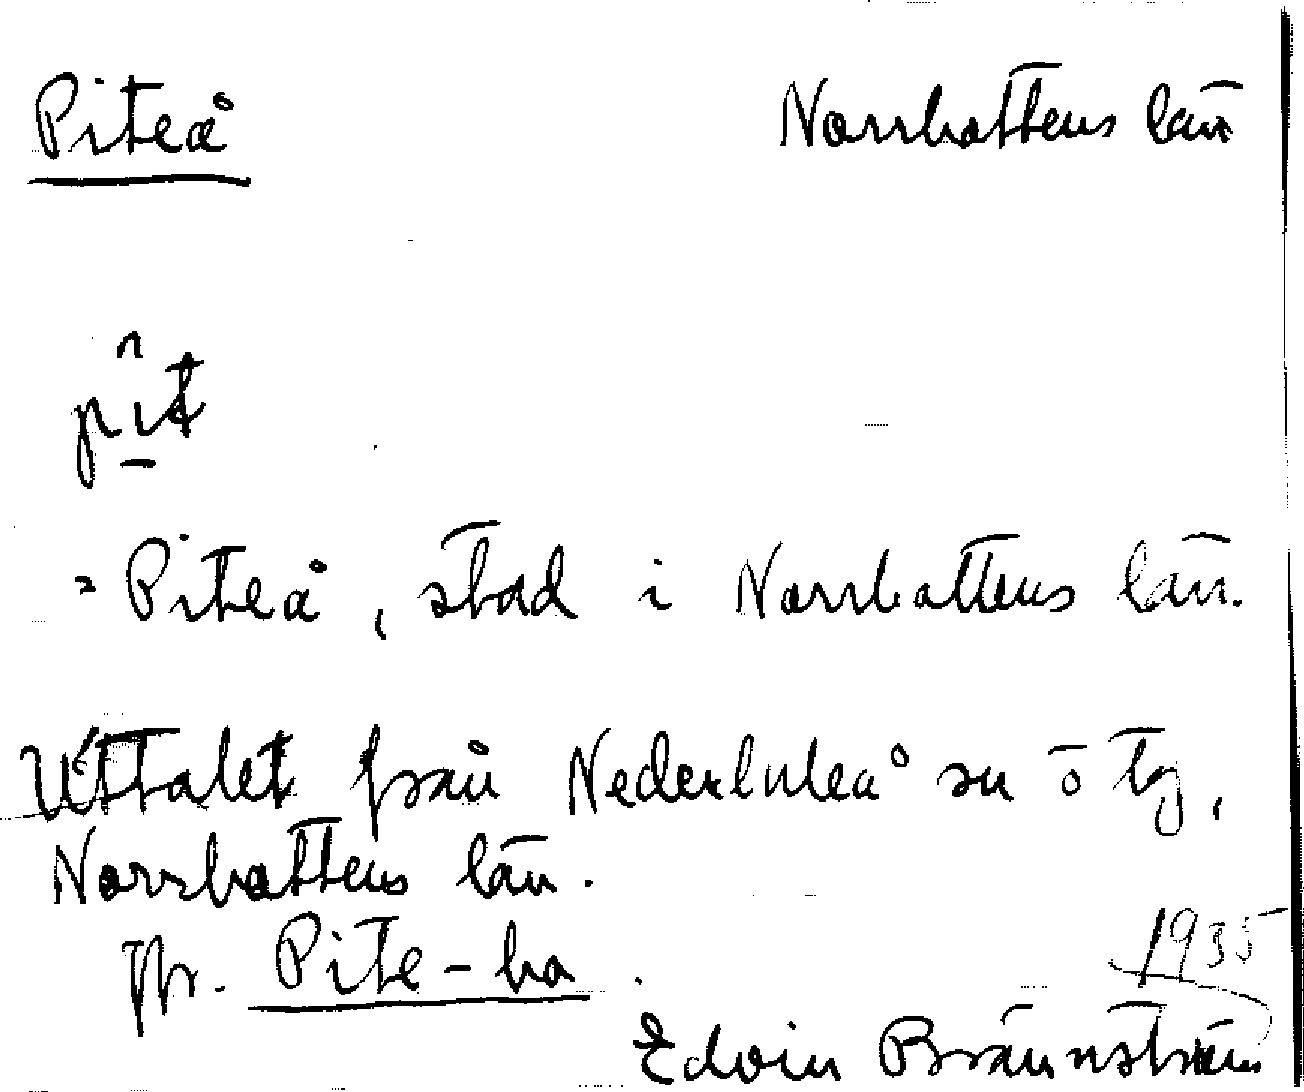 Piteå Norrbottens län
pît
= Piteå, stad i Norrbottens län.
Uttalet från Nederluleå sn o tg,
Norrbottens län.
Jfr. Pite-bo.
1935
Edvin Brännström